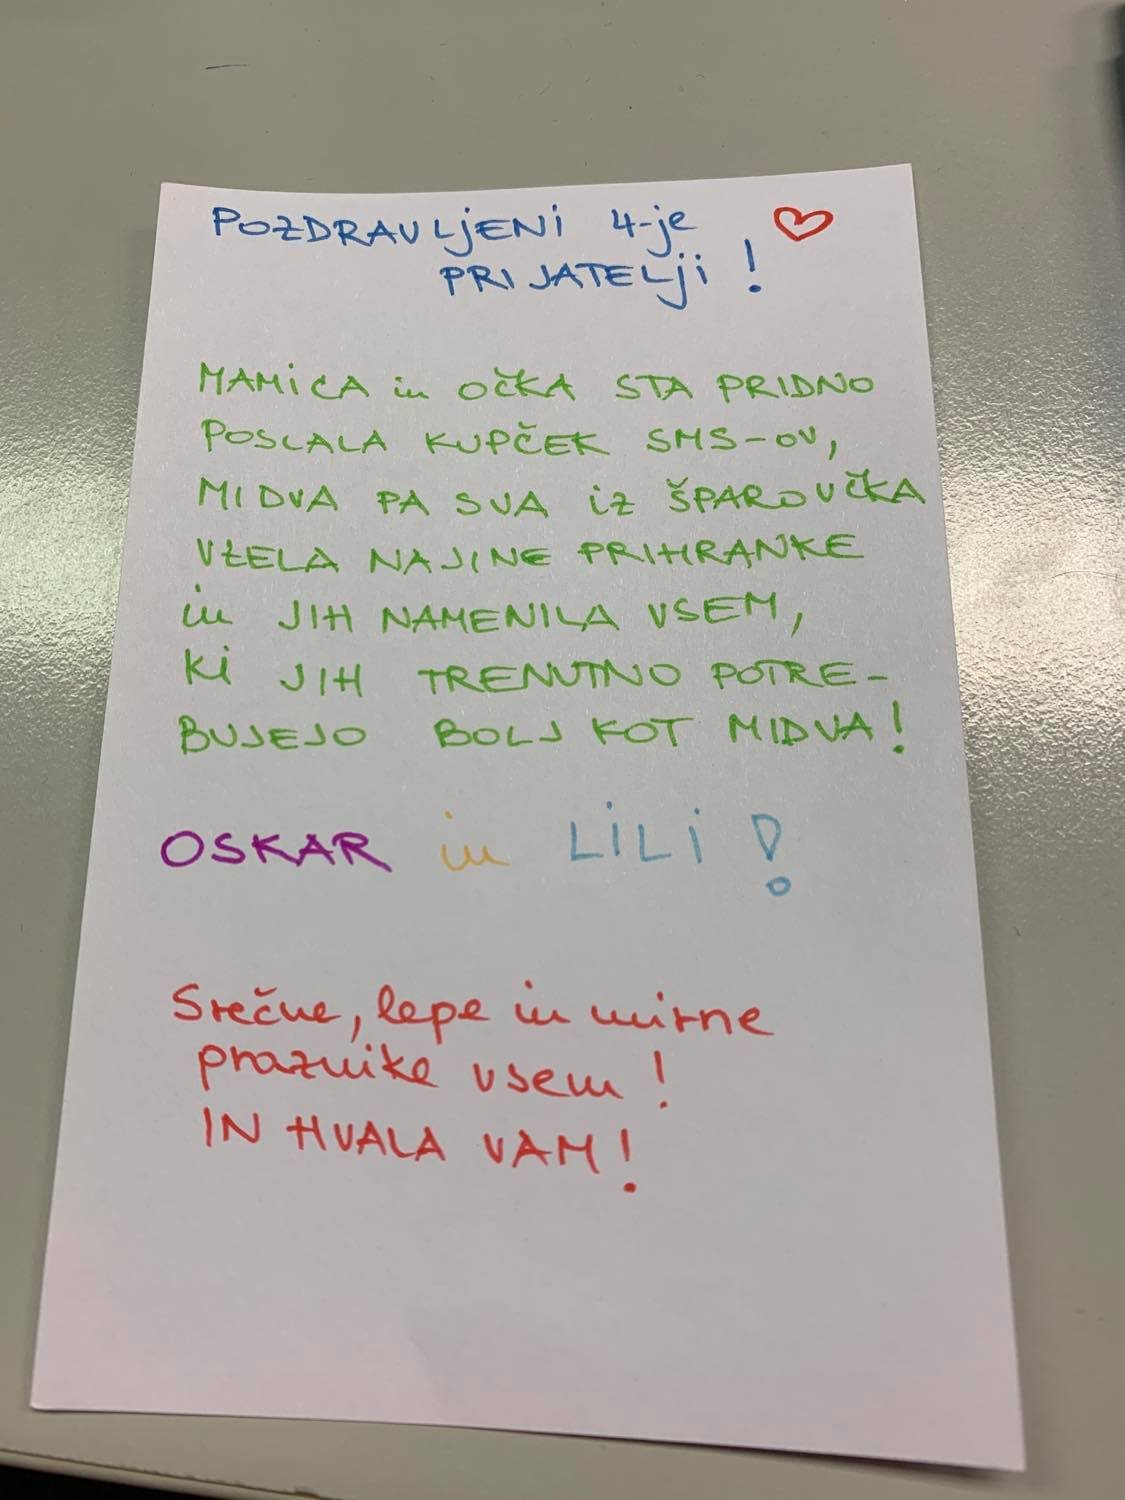 POZDRAVLJENI 4-je
PRIJATELji!
MAMiCA in OČKA STA PRIDNO
POSLALA KUPČEK SMS-OV,
MIDVA PA SVA iZ ŠPAROVČKA
VZELA NAJINE PRIHRANKE
in JIH NAMENILA VSEM,
Ki JIH TRENUTNO POTRE-
BUJEJO BOLJ KOT MIDVA!
OSKAR in LiLi!
Srečne, lepe in mirne
praznike vsem!
IN HVALA VAM!